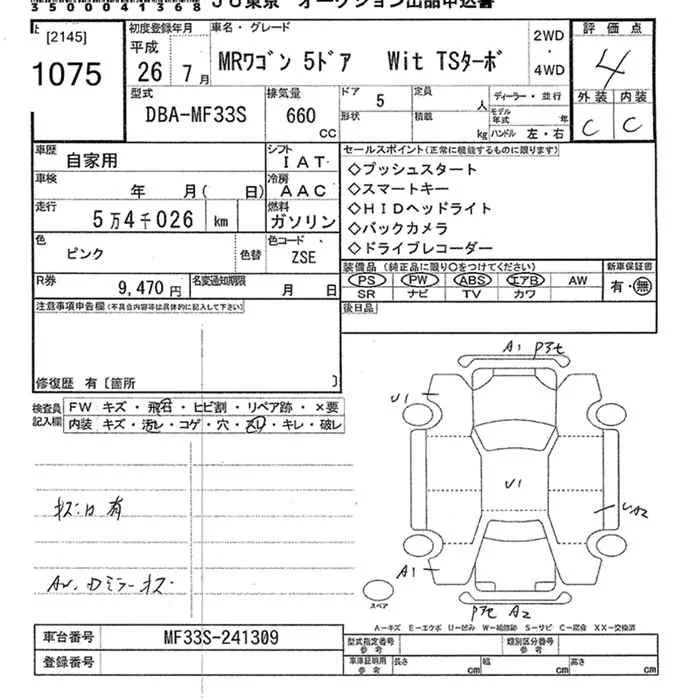 35000041368 JU東京 オークション出品申込書
[2145]
1075
初度登録年月
平成
26年 7月
車名・グレード
MRワゴン 5ドア Wit TSターボ
2WD
・
4WD
評価点
4
外装 内装
C C
型式
DBA-MF33S
排気量
660
cc
ドア 5
定員 人
形状
積載 kg
ディーラー・並行
モデル年式 年
ハンドル 左・右
車歴 自家用
シフト IAT
車検 年 月( 日)
冷房 AAC
走行 5万4千026 km
燃料 ガソリン
色 ピンク
色替
色コード
ZSE
R券 9,470 円
名変通知期限 月 日
セールスポイント(正常に機能するものに限ります)
◇プッシュスタート
◇スマートキー
◇HIDヘッドライト
◇バックカメラ
◇ドライブレコーダー
装備品(純正品に限り○をつけてください)
PS PW ABS エアB AW
SR ナビ TV カワ
新車保証書
有・無
後日品
注意事項申告欄(不具合内容等は具体的に記入して下さい)
修復歴 有[箇所 ]
検査員記入欄
FW キズ・飛石・ヒビ割・リペア跡・×要
内装 キズ・汚レ・コゲ・穴・スレ・キレ・破レ
A1
U1
U1
UA2
A1
A2
スペア
A-キズ E-エクボ U-凹み W-補修跡 S-サビ C-腐食 XX-交換済
車台番号 MF33S-241309
登録番号
型式指定番号 参考
類別区分番号 参考
車庫証明用 参考
長さ cm
幅 cm
高さ cm